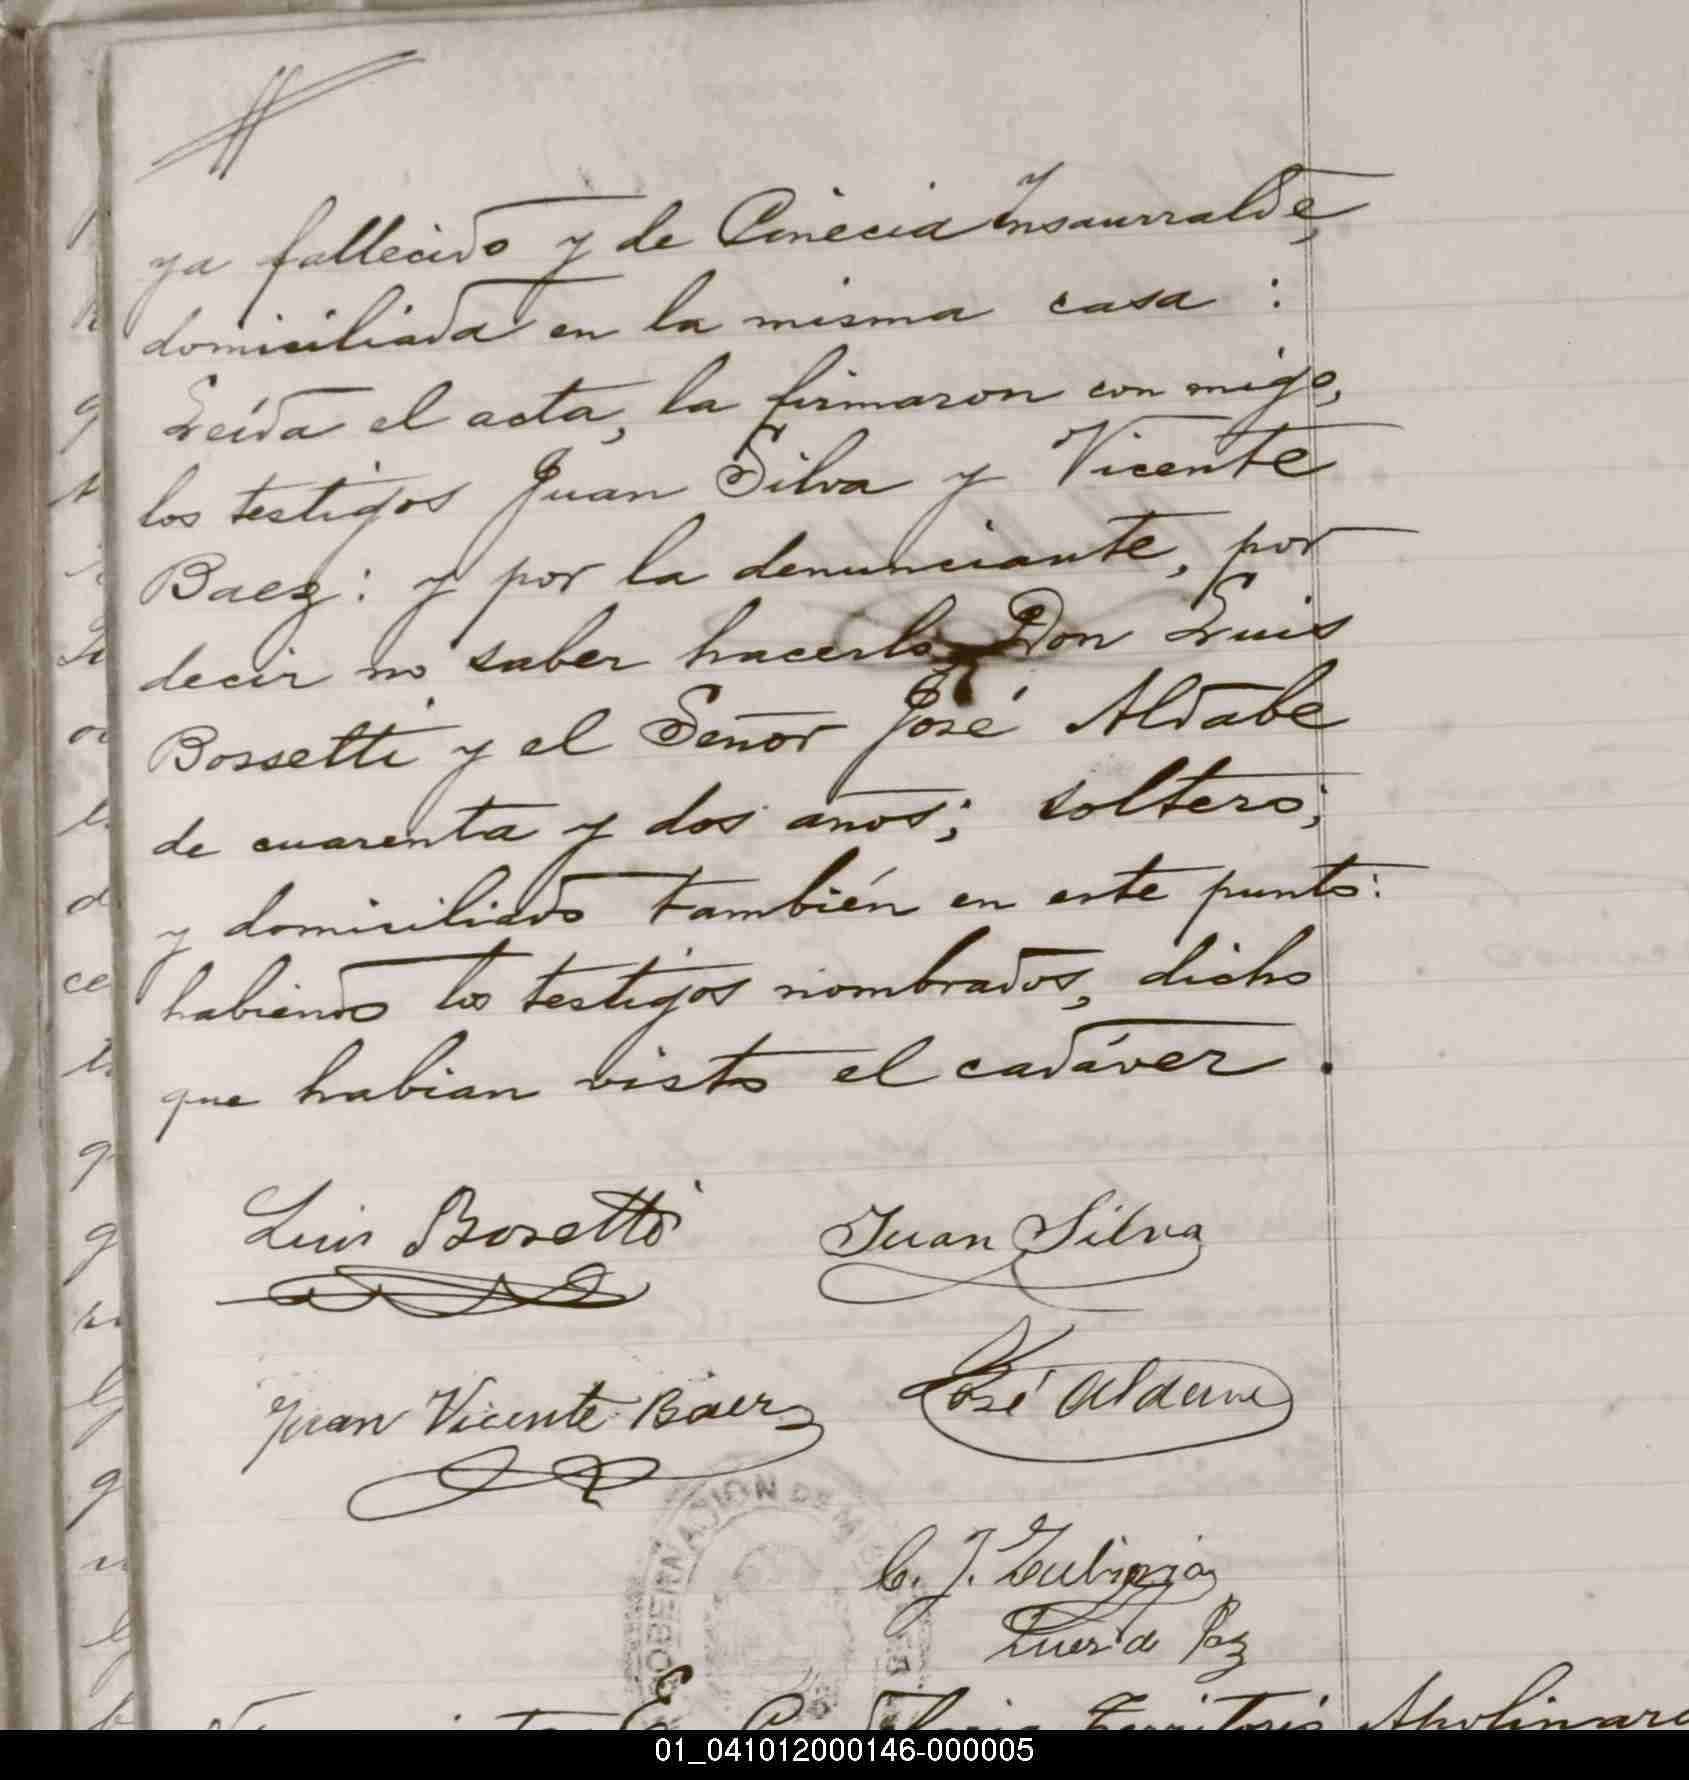 ya fallecido y de Cinecia Insaurralde,
domiciliada en la misma casa :
Leída el acta, la firmaron con migo,
los testigos Juan Silva y Vicente
Baez: y por la denunciante, por
decir no saber hacerlo, Don Luis
Bossetti y el Señor José Aldabe
de cuarenta y dos años; soltero;
y domiciliado también en este punto:
habiendo los testigos nombrados, dicho
que habian visto el cadáver.
Luis Bosetti
Juan Silva
Juan Vicente Baez
José
GOBERNACION DE
C. J.
Juez de Paz
Territorio Apolinario
01_041012000146-000005